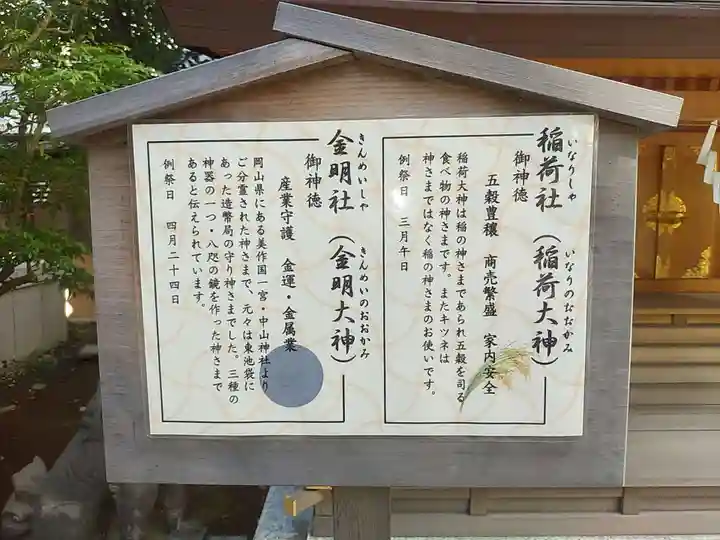 いなりしゃ いなりのおおかみ
稲荷社(稲荷大神)
御神徳
五穀豊穣 商売繁盛 家内安全
稲荷大神は稲の神さまであられ五穀を司る
食べ物の神さまです。またキツネは
神さまではなく稲の神さまのお使いです。
例祭日 三月午日
きんめいしゃ きんめいのおおかみ
金明社(金明大神)
御神徳
産業守護 金運・金属業
岡山県にある美作国一宮・中山神社より
ご分霊された神さまで、元々は東池袋に
あった造幣局の守り神さまでした。三種の
神器の一つ・八咫の鏡を作った神さまで
あると伝えられています。
例祭日 四月二十四日